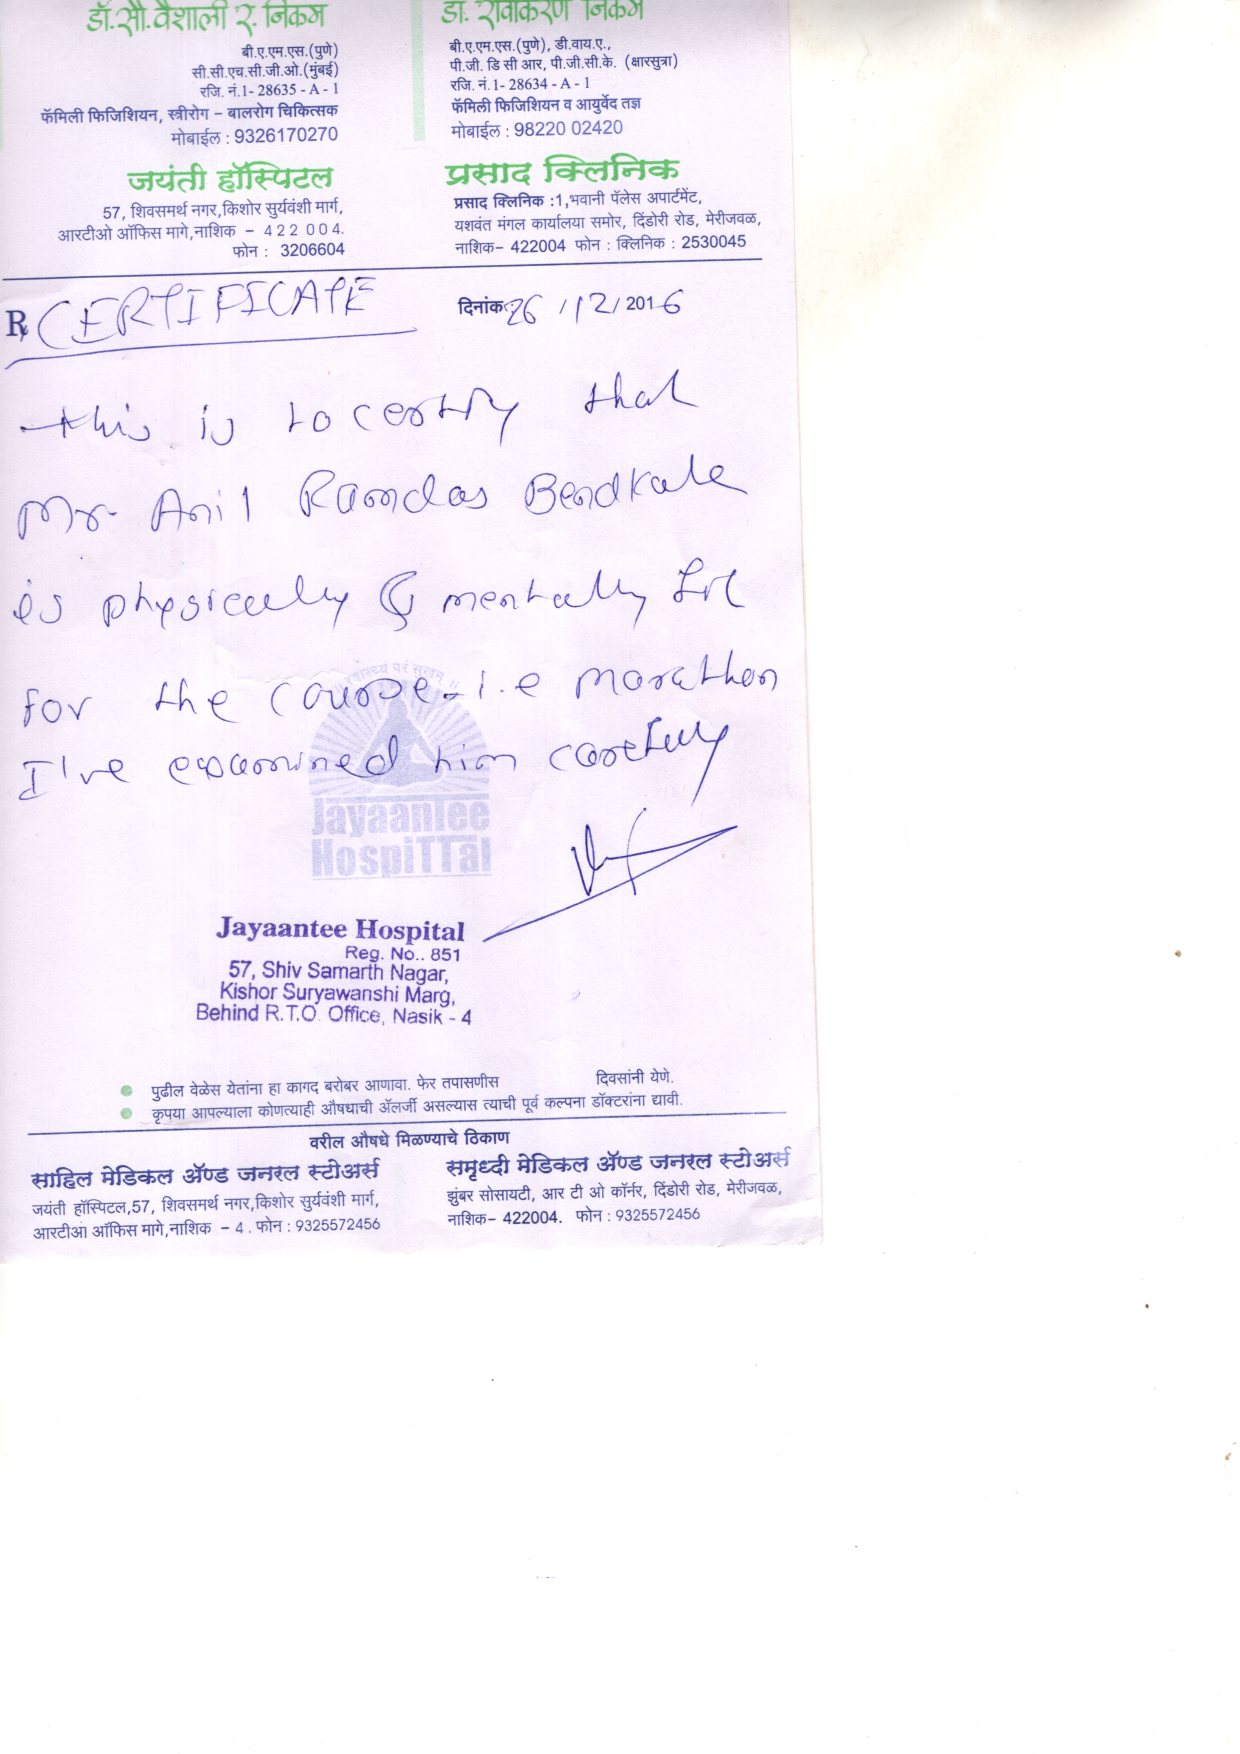 डॉ.सौ.वैशाली र. निकम
बी.ए.एम.एस.(पुणे)
सी.सी.एच.सी.जी.ओ.(मुंबई)
रजि. नं.1- 28635 - A - 1
फॅमिली फिजिशियन, स्त्रीरोग – बालरोग चिकित्सक
मोबाईल : 9326170270
जयंती हॉस्पिटल
57, शिवसमर्थ नगर,किशोर सुर्यवंशी मार्ग,
आरटीओ ऑफिस मागे,नाशिक - 4 2 2 0 0 4.
फोन : 3206604
डॉ. रविकिरण निकम
बी.ए.एम.एस.(पुणे), डी.वाय.ए.,
पी.जी. डि सी आर, पी.जी.सी.के. (क्षारसुत्रा)
रजि. नं.1- 28634 - A - 1
फॅमिली फिजिशियन व आयुर्वेद तज्ञ
मोबाईल : 98220 02420
प्रसाद क्लिनिक
प्रसाद क्लिनिक :1,भवानी पॅलेस अपार्टमेंट,
यशवंत मंगल कार्यालया समोर, दिंडोरी रोड, मेरीजवळ,
नाशिक– 422004 फोन : क्लिनिक : 2530045
Rx CERTIFICATE दिनांक: 26/12/2016
This is to certify that
Mr. Anil Ramdas Bendkale
is physically & mentally fit
for the course - i.e marathon
I've examined him carefully
स्वास्थ्यं परं सुखम् ॥
Jayaantee
HospiTTal
Jayaantee Hospital
Reg. No.. 851
57, Shiv Samarth Nagar,
Kishor Suryawanshi Marg,
Behind R.T.O. Office, Nasik - 4
पुढील वेळेस येतांना हा कागद बरोबर आणावा. फेर तपासणीस दिवसांनी येणे.
कृपया आपल्याला कोणत्याही औषधाची ॲलर्जी असल्यास त्याची पूर्व कल्पना डॉक्टरांना द्यावी.
वरील औषधे मिळण्याचे ठिकाण
साहिल मेडिकल ॲण्ड जनरल स्टोअर्स
जयंती हॉस्पिटल,57, शिवसमर्थ नगर,किशोर सुर्यवंशी मार्ग,
आरटीओ ऑफिस मागे,नाशिक - 4 . फोन : 9325572456
समृध्दी मेडिकल ॲण्ड जनरल स्टोअर्स
झुंबर सोसायटी, आर टी ओ कॉर्नर, दिंडोरी रोड, मेरीजवळ,
नाशिक– 422004. फोन : 9325572456